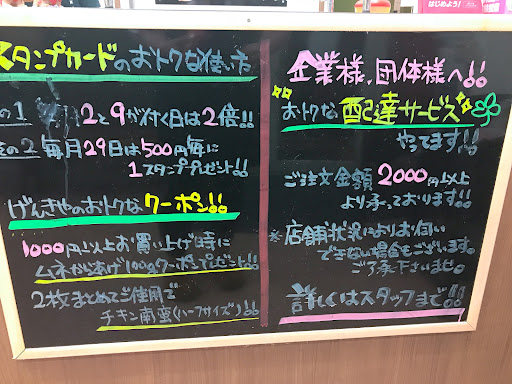 スタンプカードのおトクな使い方
の1 2と9が付く日は2倍!!
その2 毎月29日は500円毎に
1スタンププレゼント!!
げんきやのおトクなクーポン!!
1000円以上お買い上げ時に
ムネから揚げ100gクーポンプレゼント!!
2枚まとめてご使用で
チキン南蛮(ハーフサイズ)!!
企業様、団体様へ!!
おトクな配達サービス
やってます!!
ご注文金額2000円以上
より承っております!!
※店舗状況によりお伺い
できない場合もございます。
ご了承下さいませ。
詳しくはスタッフまで!!
はじめよう!